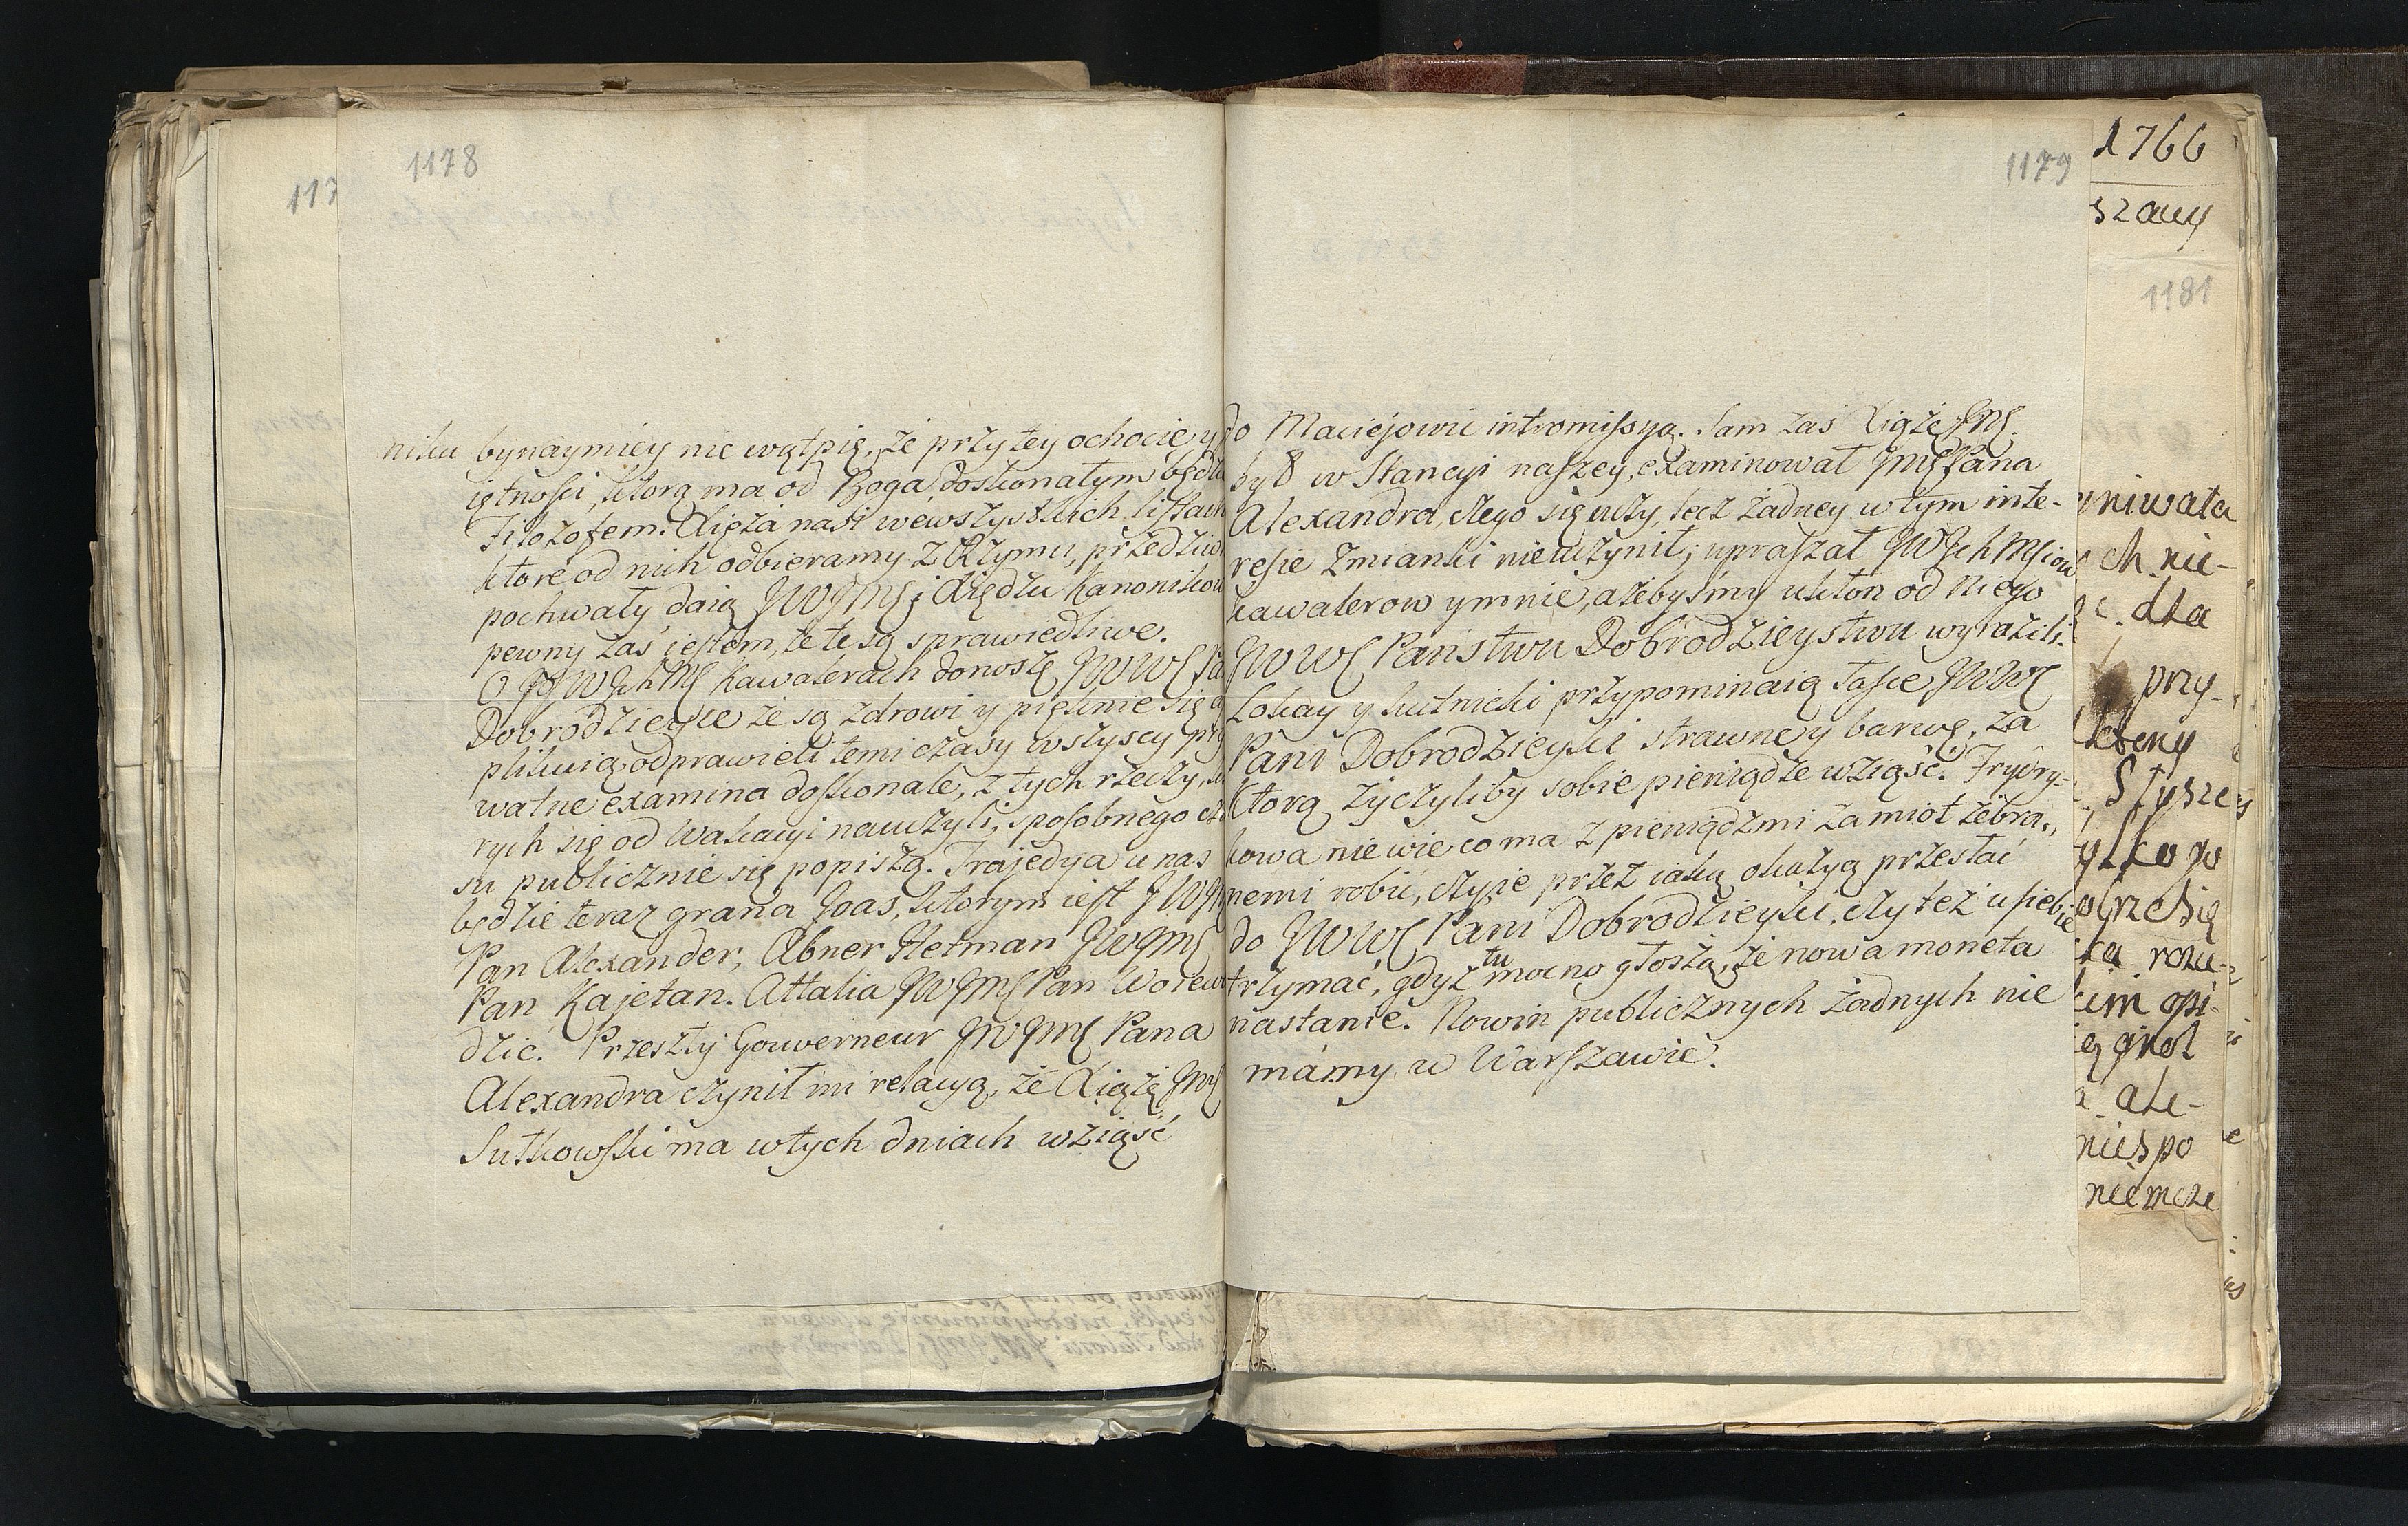 1178
117
niku bynaymiey nie wątpię, że przy tey ochocie y
iętności, ktorą ma od Boga, doskonałym będzie
Filozofem. Xięża nasi we wszystkich listach
ktore od nich odbieramy z Rzymu, przedziwne
pochwały daią JWJMCi Xiędzu Kanonikowi
pewny zaś iestem, że te są sprawiedliwe.
O JJWWIchMC Kawalerach donoszę JWWC Pa
Dobrodzieyce że są zdrowi y pięknie się
plikuią, odprawieli temi czasy wszyscy pry
watne examina doskonale, z tych rzeczy, kto
rych się od Wakacyi nauczyli, sposobnego cza
su publicznie się popiszą. Trajedya u nas
będzie teraz grana Joas, ktorym iest JWJM
Pan Alexander, Abner Hetman JWJMC
Pan Kajetan. Attalia JWJMC Pan Woiewo
dzic. Przeszły Gouverneur JWJMC Pana
Alexandra czynił mi relacyą, że Xiążę JMC
Sułkowski ma w tych dniach wziąść
1179
do Maciejowic intromissyą. Sam zaś Xiąże JMC.
był w Stancyi naszey, examinował JMC Pana
Alexandra, czego się uczy, lecz żadney w tym inte-
resie zmianki nie uczynił; upraszał JWIchMCiow
kawalerow y mnie, ażebyśmy ukłon od Niego
JWWC Państwu Dobrodzieystwu wyrazili.
Lokay y kuchnicki przypominaią łasce JWWC
Pani Dobrodzieyki strawne y barwę, za
Ktorą życzyliby sobie pieniądze wziąść. Frydry-
kowa nie wie co ma z pieniądzmi za miot zebra-
nemi robić, czy ie przez iaką okazyą przesłać
do JWWC Pani Dobrodzieyki, czy też u siebie
trzymać, gdyż tu mocno głoszą, że nowa moneta
nastanie. Nowin publicznych żadnych nie
mámy w Warszawie.
1766
szawy
1181
yniwała
ch nie-
dla
przy-
Słysze
ylko go
rozu-
kim opi-
ale-
nie po
nie może